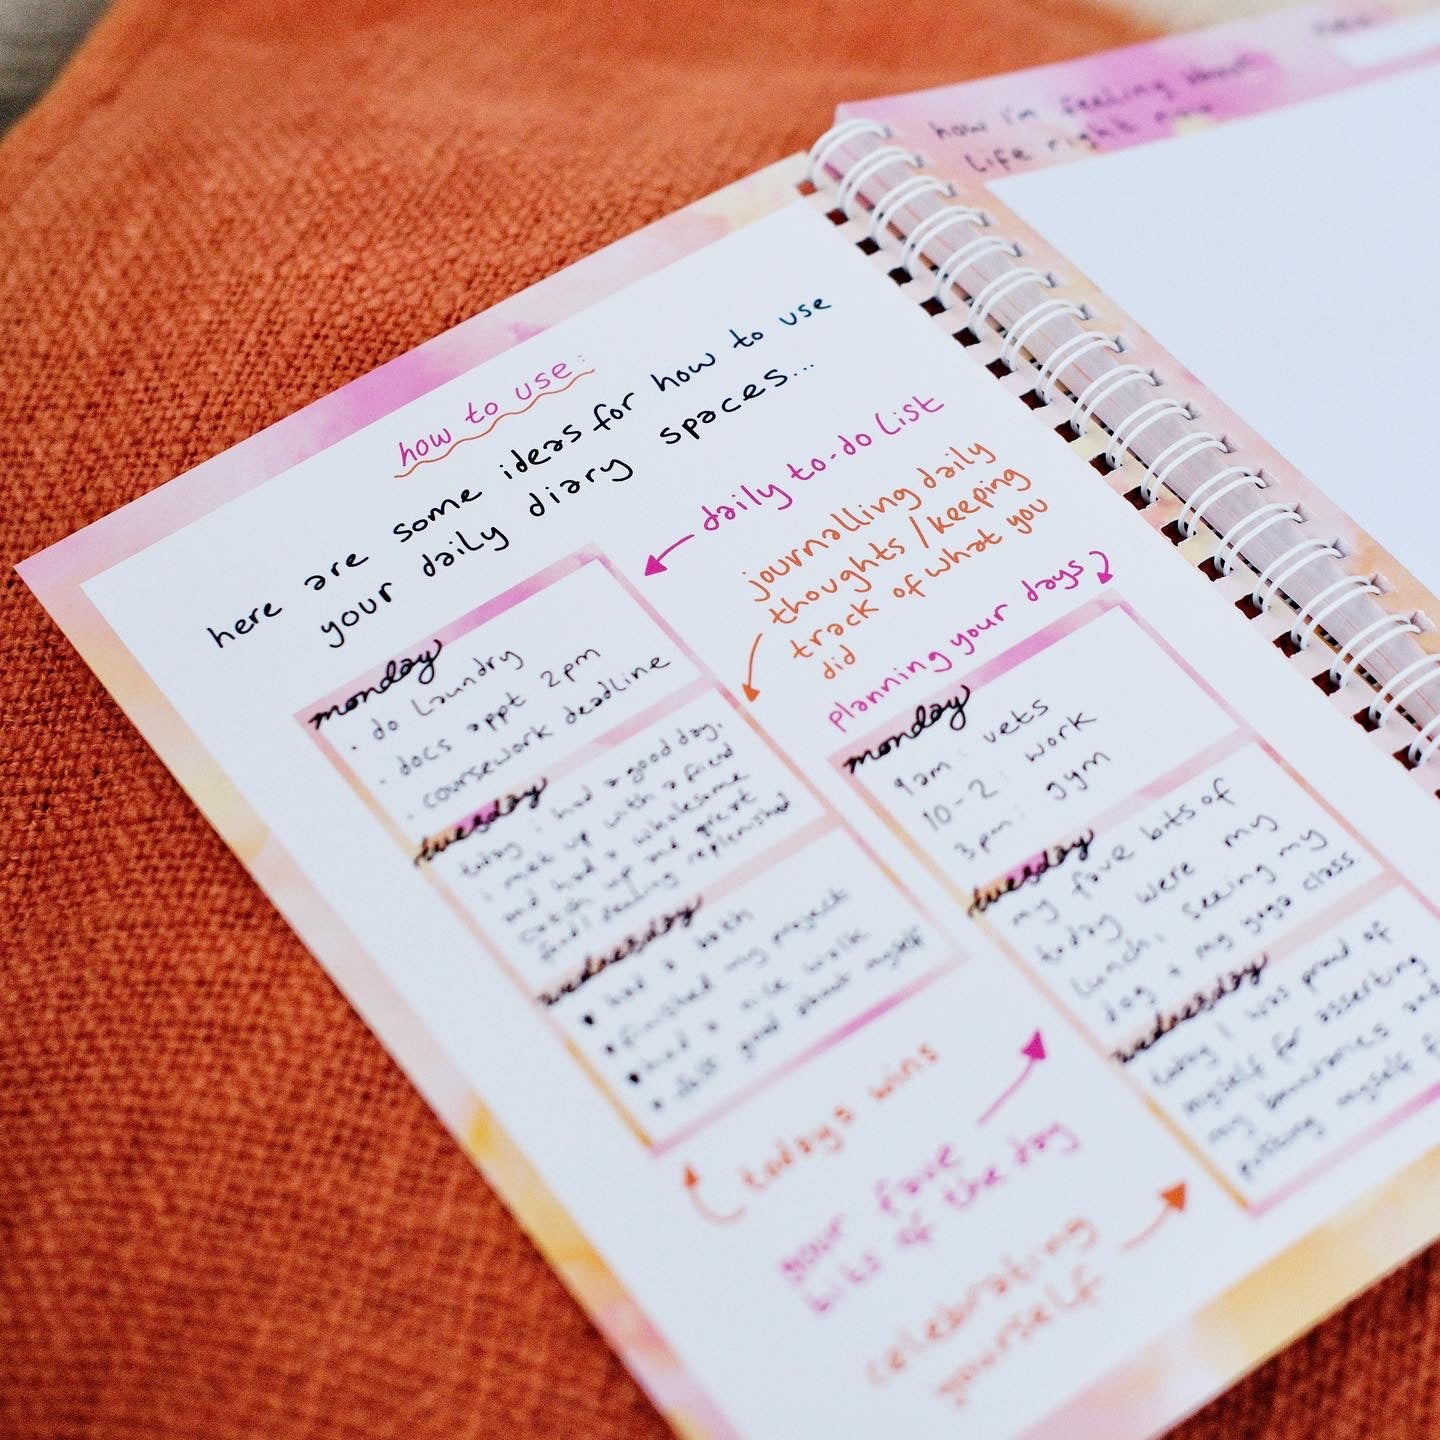 how to use:
here are some ideas for how to use
your daily diary spaces...
daily to-do list
monday
. do laundry
. docs appt 2pm
. coursework deadline
journalling daily
thoughts / keeping
track of what you
did
tuesday
today i had a good day.
i met up with a friend
and had a wholesome
catch up and great
food! feeling replenished
wednesday
• had a bath
• finished my project
• had a nice walk
• felt good about myself
todays wins
planning your days
monday
9am: vets
10-2: work
3pm: gym
tuesday
my fave bits of
today were my
lunch, seeing my
dog + my yoga class
your fave
bits of the day
wednesday
today I was proud of
myself for asserting
my boundaries and
putting myself
celebrating
yourself
how i'm feeling about
life right now